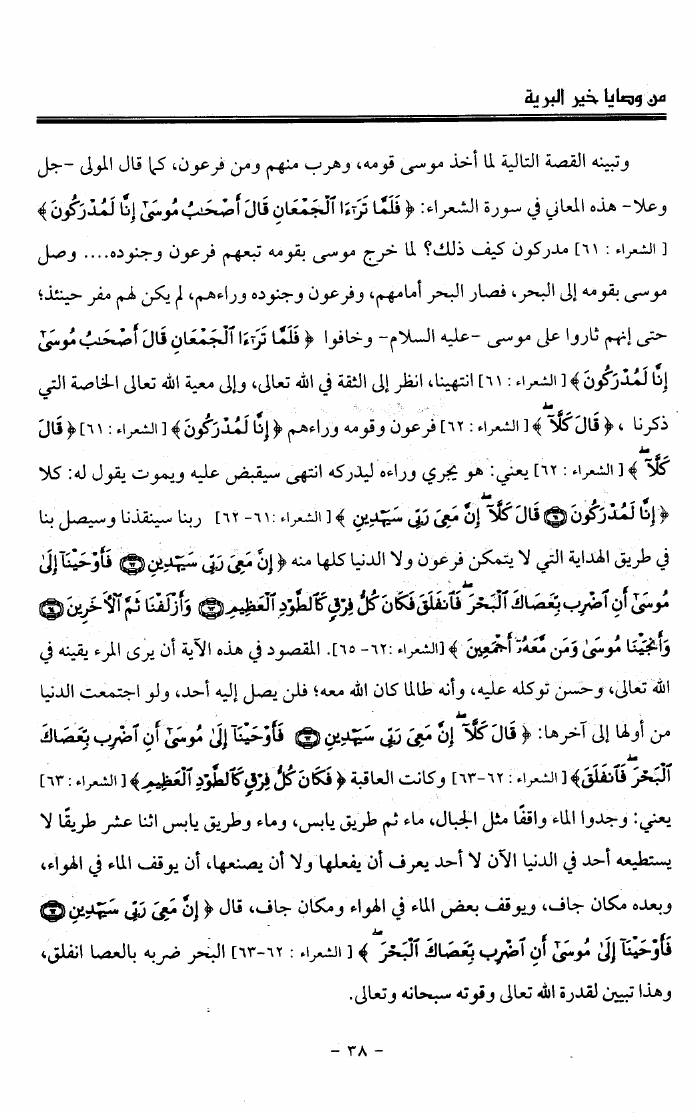 من وصايا خير البرية
وتبينه القصة التالية لما أخذ موسى قومه، وهرب منهم ومن فرعون، كما قال المولى -جل
وعلا- هذه المعاني في سورة الشعراء: ﴿ فَلَمَّا تَرَٰٓءَا ٱلْجَمْعَانِ قَالَ أَصْحَٰبُ مُوسَىٰٓ إِنَّا لَمُدْرَكُونَ ﴾
[ الشعراء : ٦١] مدركون كيف ذلك؟ لما خرج موسى بقومه تبعهم فرعون وجنوده.... وصل
موسى بقومه إلى البحر، فصار البحر أمامهم، وفرعون وجنوده وراءهم، لم يكن لهم مفر حينئذ؛
حتى إنهم ثاروا على موسى -عليه السلام- وخافوا ﴿ فَلَمَّا تَرَٰٓءَا ٱلْجَمْعَانِ قَالَ أَصْحَٰبُ مُوسَىٰٓ
إِنَّا لَمُدْرَكُونَ ﴾[ الشعراء : ٦١] انتهينا، انظر إلى الثقة في الله تعالى، وإلى معية الله تعالى الخاصة التي
ذكرنا ، ﴿ قَالَ كَلَّآ ۖ ﴾[ الشعراء : ٦٢] فرعون وقومه وراءهم ﴿ إِنَّا لَمُدْرَكُونَ ﴾[ الشعراء : ٦١] ﴿ قَالَ
كَلَّآ ۖ ﴾[ الشعراء : ٦٢] يعني: هو يجري وراءه ليدركه انتهى سيقبض عليه ويموت يقول له: كلا
﴿ إِنَّا لَمُدْرَكُونَ ۝٦١ قَالَ كَلَّآ ۖ إِنَّ مَعِىَ رَبِّى سَيَهْدِينِ ﴾[ الشعراء :٦١- ٦٢] ربنا سينقذنا وسيصل بنا
في طريق الهداية التي لا يتمكن فرعون ولا الدنيا كلها منه ﴿ إِنَّ مَعِىَ رَبِّى سَيَهْدِينِ ۝٦٢ فَأَوْحَيْنَآ إِلَىٰ
مُوسَىٰٓ أَنِ ٱضْرِب بِّعَصَاكَ ٱلْبَحْرَ ۖ فَٱنفَلَقَ فَكَانَ كُلُّ فِرْقٍ كَٱلطَّوْدِ ٱلْعَظِيمِ ۝٦٣ وَأَزْلَفْنَا ثَمَّ ٱلْأَخَرِينَ ۝٦٤
وَأَنجَيْنَا مُوسَىٰ وَمَن مَّعَهُۥٓ أَجْمَعِينَ ﴾[الشعراء :٦٢- ٦٥]. المقصود في هذه الآية أن يرى المرء يقينه في
الله تعالى، وحسن توكله عليه، وأنه طالما كان الله معه؛ فلن يصل إليه أحد، ولو اجتمعت الدنيا
من أولها إلى آخرها: ﴿ قَالَ كَلَّآ ۖ إِنَّ مَعِىَ رَبِّى سَيَهْدِينِ ۝٦٢ فَأَوْحَيْنَآ إِلَىٰ مُوسَىٰٓ أَنِ ٱضْرِب بِّعَصَاكَ
ٱلْبَحْرَ ۖ فَٱنفَلَقَ ﴾[ الشعراء : ٦٢-٦٣] وكانت العاقبة ﴿ فَكَانَ كُلُّ فِرْقٍ كَٱلطَّوْدِ ٱلْعَظِيمِ ﴾[ الشعراء : ٦٣]
يعني: وجدوا الماء واقفًا مثل الجبال، ماء ثم طريق يابس، وماء وطريق يابس اثنا عشر طريقًا لا
يستطيعه أحد في الدنيا الآن لا أحد يعرف أن يفعلها ولا أن يصنعها، أن يوقف الماء في الهواء،
وبعده مكان جاف، ويوقف بعض الماء في الهواء ومكان جاف، قال ﴿ إِنَّ مَعِىَ رَبِّى سَيَهْدِينِ ۝٦٢
فَأَوْحَيْنَآ إِلَىٰ مُوسَىٰٓ أَنِ ٱضْرِب بِّعَصَاكَ ٱلْبَحْرَ ۖ ﴾[ الشعراء : ٦٢-٦٣] البحر ضربه بالعصا انفلق،
وهذا تبيين لقدرة الله تعالى وقوته سبحانه وتعالى.
- ٣٨ -